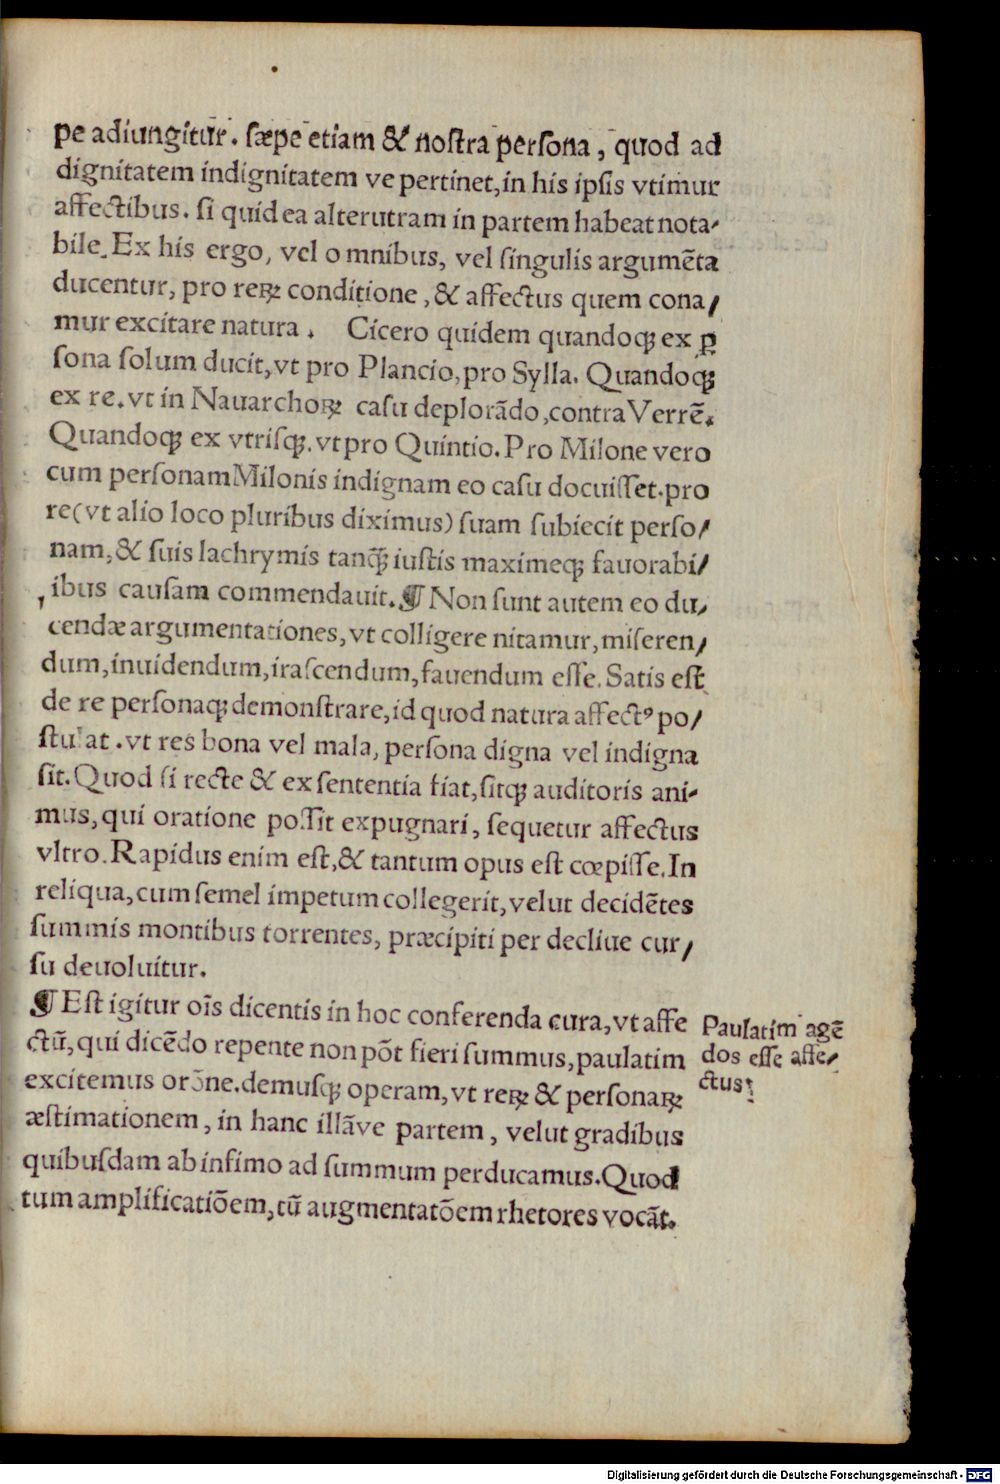 pe adiungitur. sæpe etiam & nostra persona, quod ad
dignitatem indignitatem ve pertinet, in his ipsis vtimur
affectibus. si quid ea alterutram in partem habeat nota-
bile. Ex his ergo, vel omnibus, vel singulis argumẽta
ducentur, pro reꝝ conditione, & affectus quem cona/
mur excitare natura. Cicero quidem quandoqꝫ ex ꝑ
sona solum ducit, vt pro Plancio, pro Sylla. Quandoqꝫ
ex re. vt in Nauarchoꝝ casu deplorãdo, contra Verrẽ.
Quandoqꝫ ex vtrisqꝫ. vt pro Quintio. Pro Milone vero
cum personam Milonis indignam eo casu docuisset. pro
re (vt alio loco pluribus diximus) suam subiecit perso/
nam, & suis lachrymis tanqꝫ̃ iustis maximeqꝫ fauorabi/
ibus causam commendauit. ¶ Non sunt autem eo du/
cendæ argumentationes, vt colligere nitamur, miseren/
dum, inuidendum, irascendum, fauendum esse. Satis est
de re personaqꝫ demonstrare, id quod natura affectꝰ po/
stulat. vt res bona vel mala, persona digna vel indigna
sit. Quod si recte & ex sententia fiat, sitqꝫ auditoris ani-
mus, qui oratione possit expugnari, sequetur affectus
vltro. Rapidus enim est, & tantum opus est cœpisse. In
reliqua, cum semel impetum collegerit, velut decidẽtes
summis montibus torrentes, præcipiti per decliue cur/
su deuoluitur.
¶ Est igitur oĩs dicentis in hoc conferenda cura, vt affe
ctũ, qui dicẽdo repente non põt fieri summus, paulatim
excitemus orõne. demusqꝫ operam, vt reꝝ & personaꝝ
æstimationem, in hanc illãve partem, velut gradibus
quibusdam ab infimo ad summum perducamus. Quod
tum amplificatiõem, tũ augmentatõem rhetores vocãt.
Paulatim agẽ
dos esse affe/
ctus:
Digitalisierung gefördert durch die Deutsche Forschungsgemeinschaft - DFG